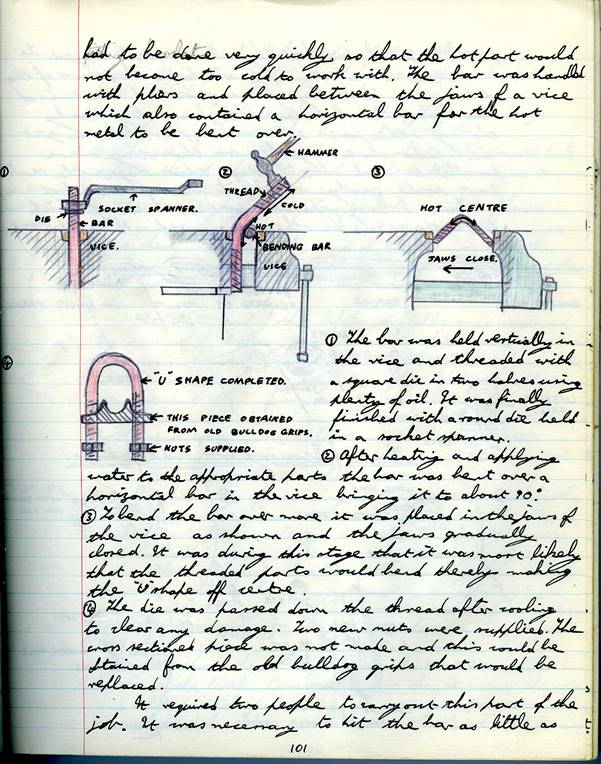 had to be done very quickly so that the hot part would
not become too cold to work with. The bar was handled
with pliers and placed between the jaws of a vice
which also contained a horizontal bar for the hot
metal to be bent over.
①
DIE
SOCKET SPANNER.
BAR
VICE.
②
HAMMER
THREAD
COLD
HOT
BENDING BAR
VICE
③
HOT CENTRE
JAWS CLOSE.
④
"U" SHAPE COMPLETED.
THIS PIECE OBTAINED
FROM OLD BULLDOG GRIPS.
NUTS SUPPLIED.
① The bar was held vertically in
the vice and threaded with
a square die in two halves using
plenty of oil. It was finally
finished with a round die held
in a socket spanner.
② After heating and applying
water to the appropriate parts the bar was bent over a
horizontal bar in the vice bringing it to about 90°.
③ To bend the bar over more it was placed in the jaws of
the vice as shown and the jaws gradually
closed. It was during this stage that it was most likely
that the threaded parts would bend thereby making
the "U" shape off centre.
④ The die was passed down the thread after cooling
to clear any damage. Two new nuts were supplied. The
cross sectioned piece was not made and this could be
obtained from the old bulldog grips that would be
replaced.
It required two people to carry out this part of the
job. It was necessary to hit the bar as little as
101